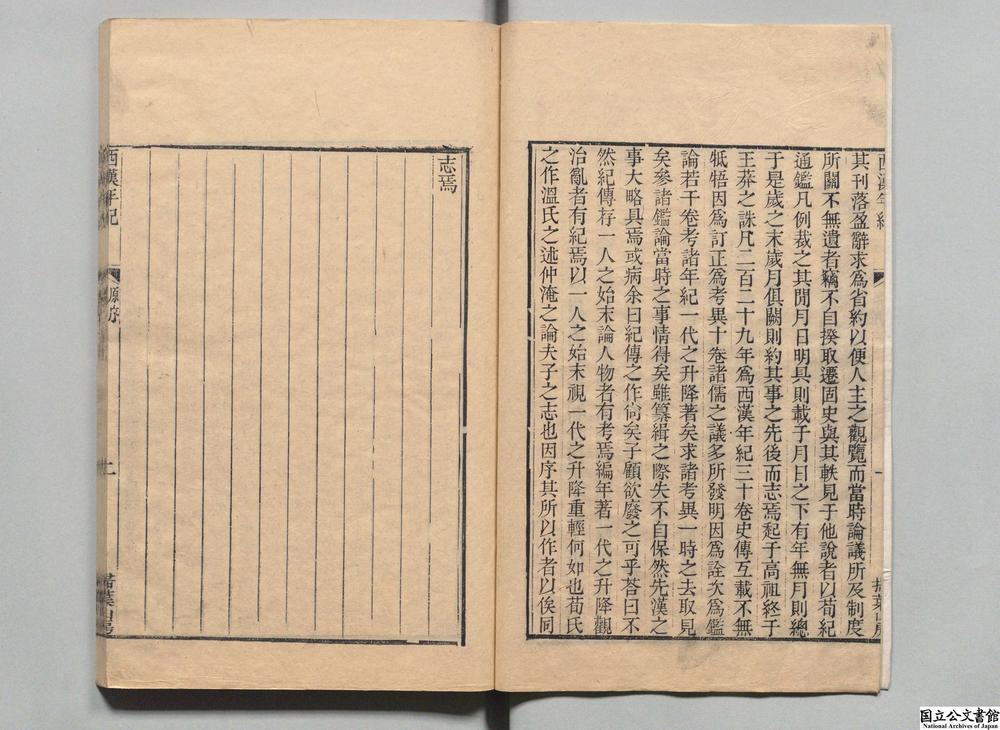 其刊落盈辭求爲省約以便人主之觀覽而當時論議所及制度
所關不無遺者竊不自揆取遷固史與其軼見于他說者以荀紀
通鑑凡例裁之其閒月日明具則載于月日之下有年無月則總
于是歲之末歲月俱闕則約其事之先後而志焉起于高祖終于
王莽之誅凡二百二十九年爲西漢年紀三十卷史傳互載不無
牴牾因爲訂正爲考異十卷諸儒之議多所發明因爲詮次爲鑑
論若干卷考諸年紀一代之升降著矣求諸考異一時之去取見
矣參諸鑑論當時之事情得矣雖纂緝之際失不自保然先漢之
事大略具焉或病余曰紀傳之作尙矣子顧欲廢之可乎荅曰不
然紀傳存一人之始末論人物者有考焉編年著一代之升降觀
治亂者有紀焉以一人之始末視一代之升降重輕何如也荀氏
之作溫氏之述仲淹之論夫子之志也因序其所以作者以俟同
志焉
西漢年紀
原序
二
埽葉山房
国立公文書館
National Archives of Japan